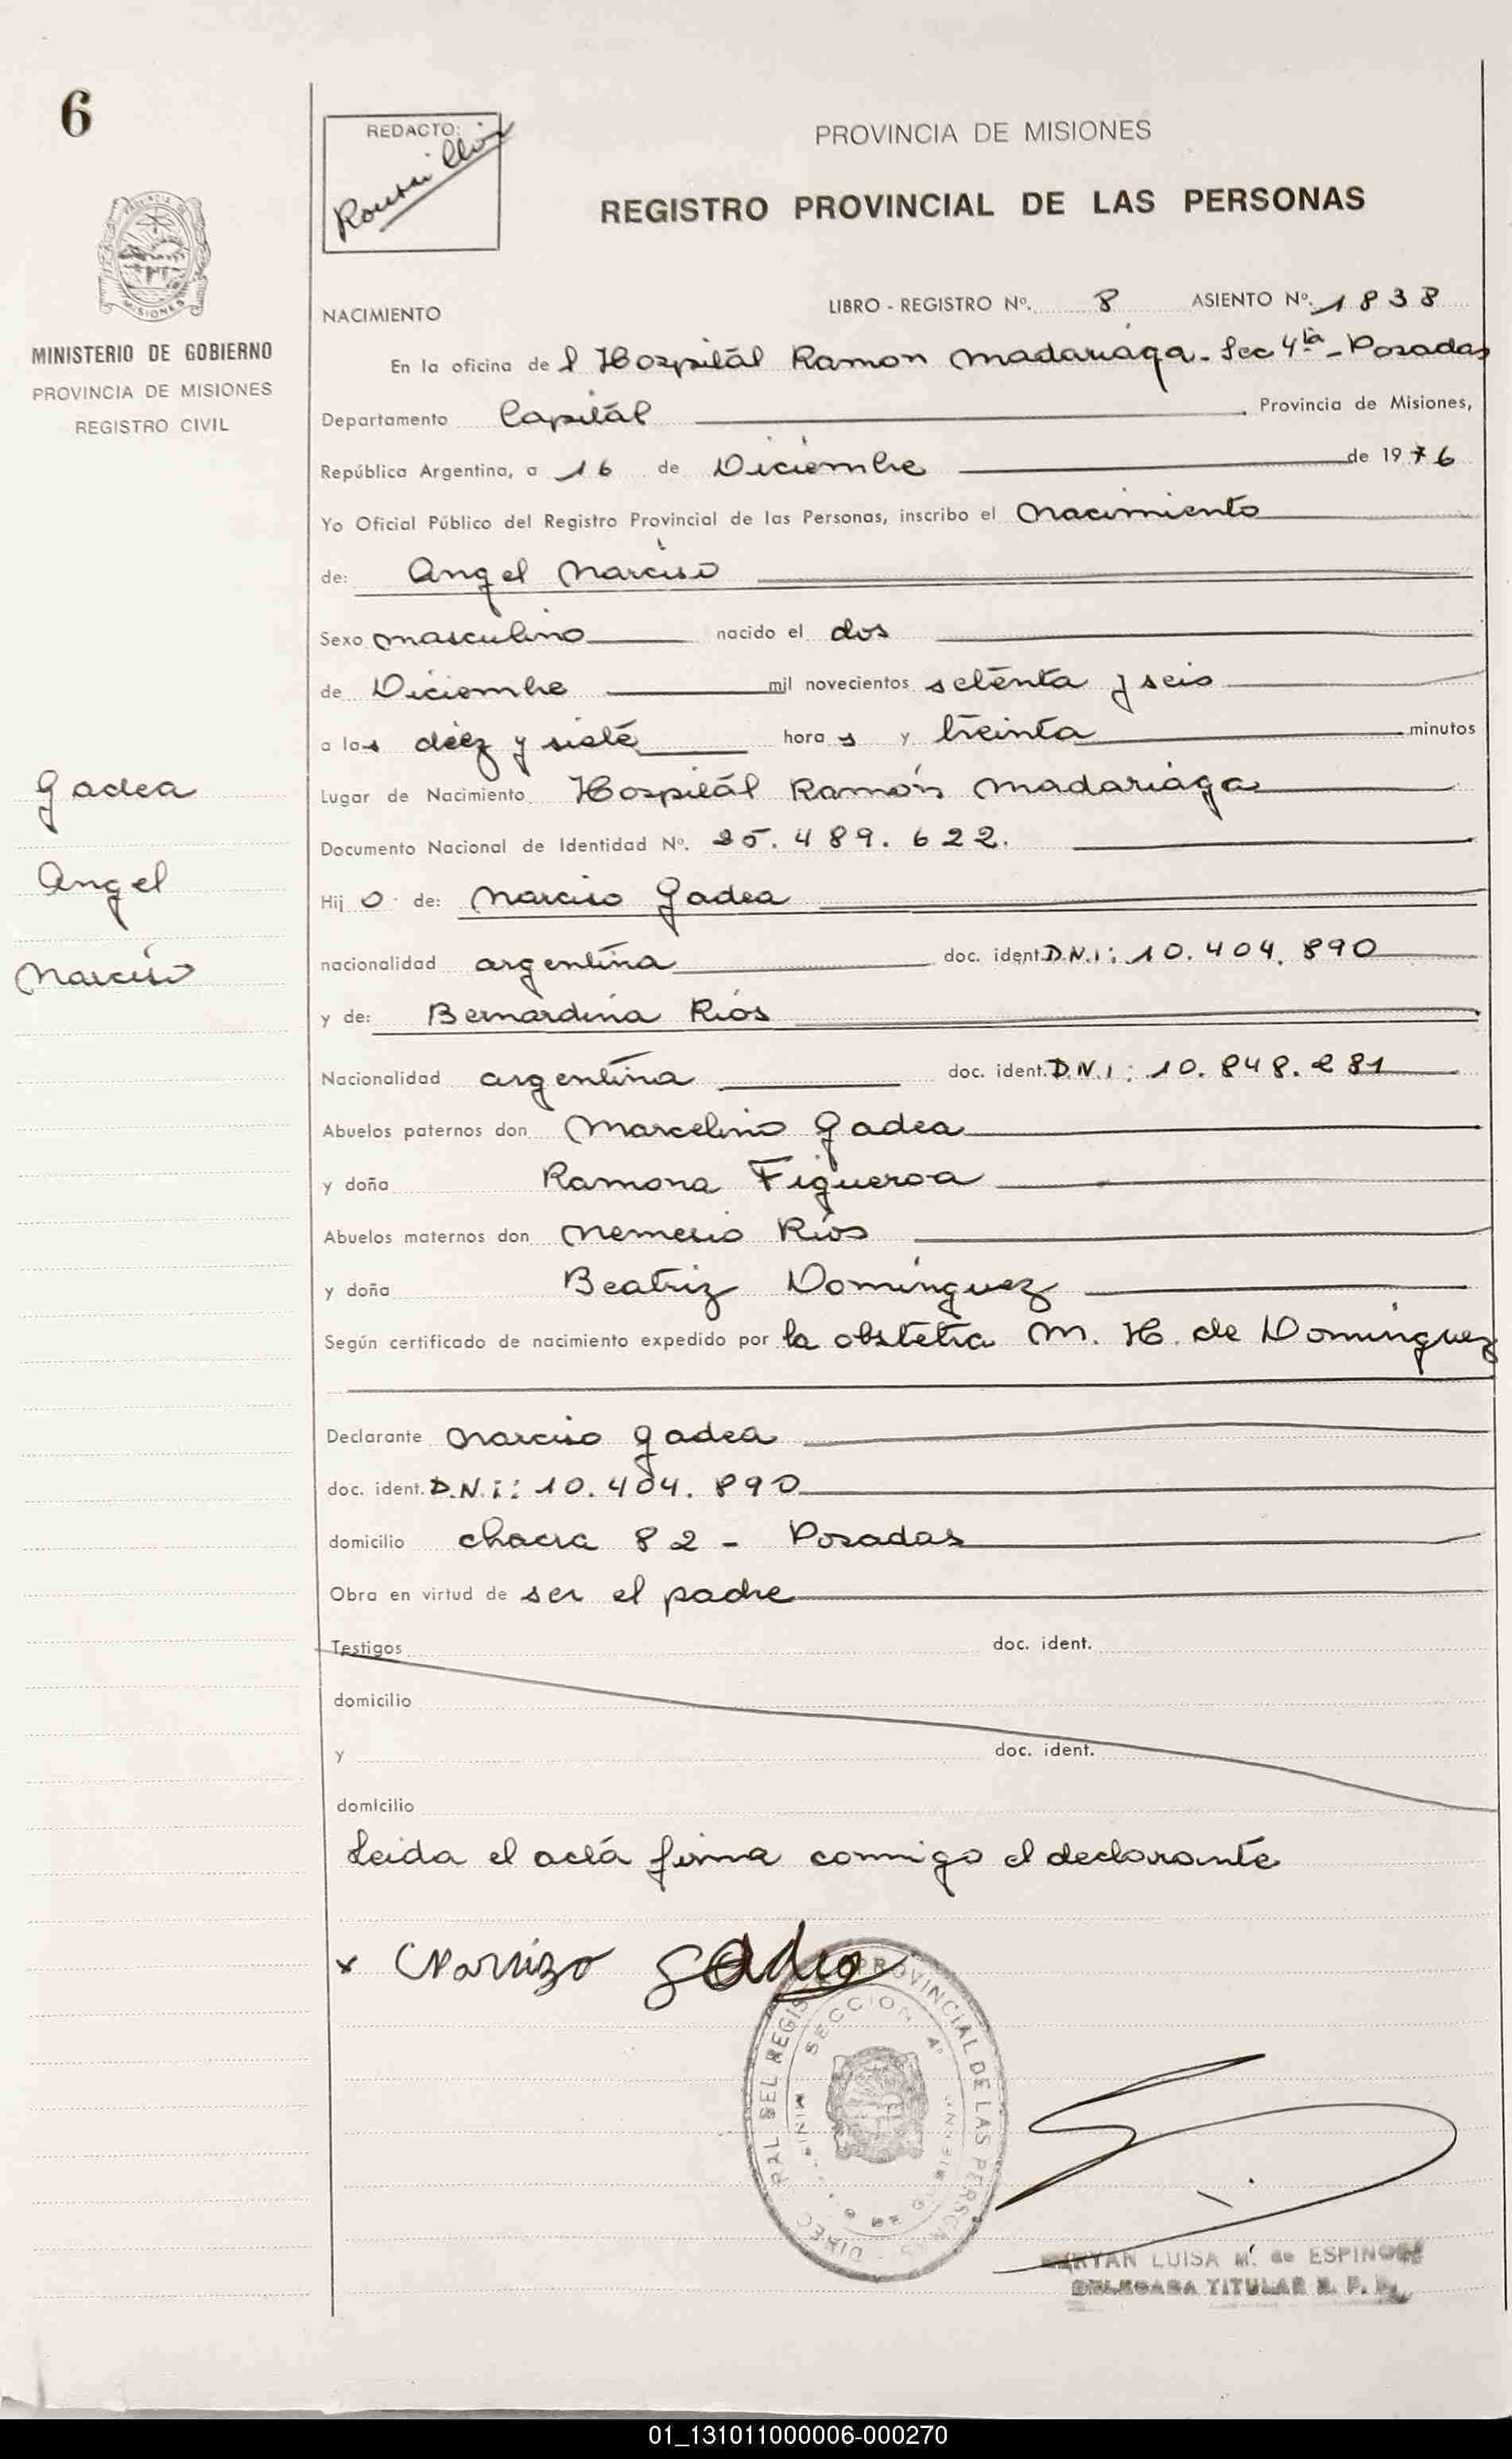 6
REDACTO:
PROVINCIA DE MISIONES
REGISTRO PROVINCIAL DE LAS PERSONAS
MISIONES
MINISTERIO DE GOBIERNO
PROVINCIA DE MISIONES
REGISTRO CIVIL
NACIMIENTO
LIBRO - REGISTRO Nº. 8 ASIENTO Nº. 1838
En la oficina del Hospital Ramon Madariaga - Sec 4ta - Posadas
Departamento Capital Provincia de Misiones,
República Argentina, a 16 de Diciembre de 1976
Yo Oficial Público del Registro Provincial de las Personas, inscribo el Nacimiento
de: Angel Narciso
Sexo masculino nacido el dos
de Diciembre mil novecientos setenta y seis
a las diez y siete horas y treinta minutos
Lugar de Nacimiento Hospital Ramón Madariaga
Documento Nacional de Identidad Nº. 25.489.622.
Hijo de: Narciso Gadea
nacionalidad argentina doc. ident. D.N.i: 10.404.890
y de: Bernardina Rios
Nacionalidad argentina doc. ident. D.N.i: 10.848.281
Abuelos paternos don Marcelino Gadea
y doña Ramona Figueroa
Abuelos maternos don Nemesio Rios
y doña Beatriz Dominguez
Según certificado de nacimiento expedido por la obstetra M. H. de Dominguez
Declarante Narciso Gadea
doc. ident. D.N.i: 10.404.890
domicilio chacra 82 - Posadas
Obra en virtud de ser el padre
Testigos doc. ident.
domicilio
y doc. ident.
domicilio
Gadea
Angel
Narciso
Leida el acta firma conmigo el declarante
x Narcizo Gadea
PROVINCIAL DE LAS PERSONAS
SECCION 4ª
LUISA M. de ESPINOSA
DELEGADA TITULAR R. P. P.
01_131011000006-000270